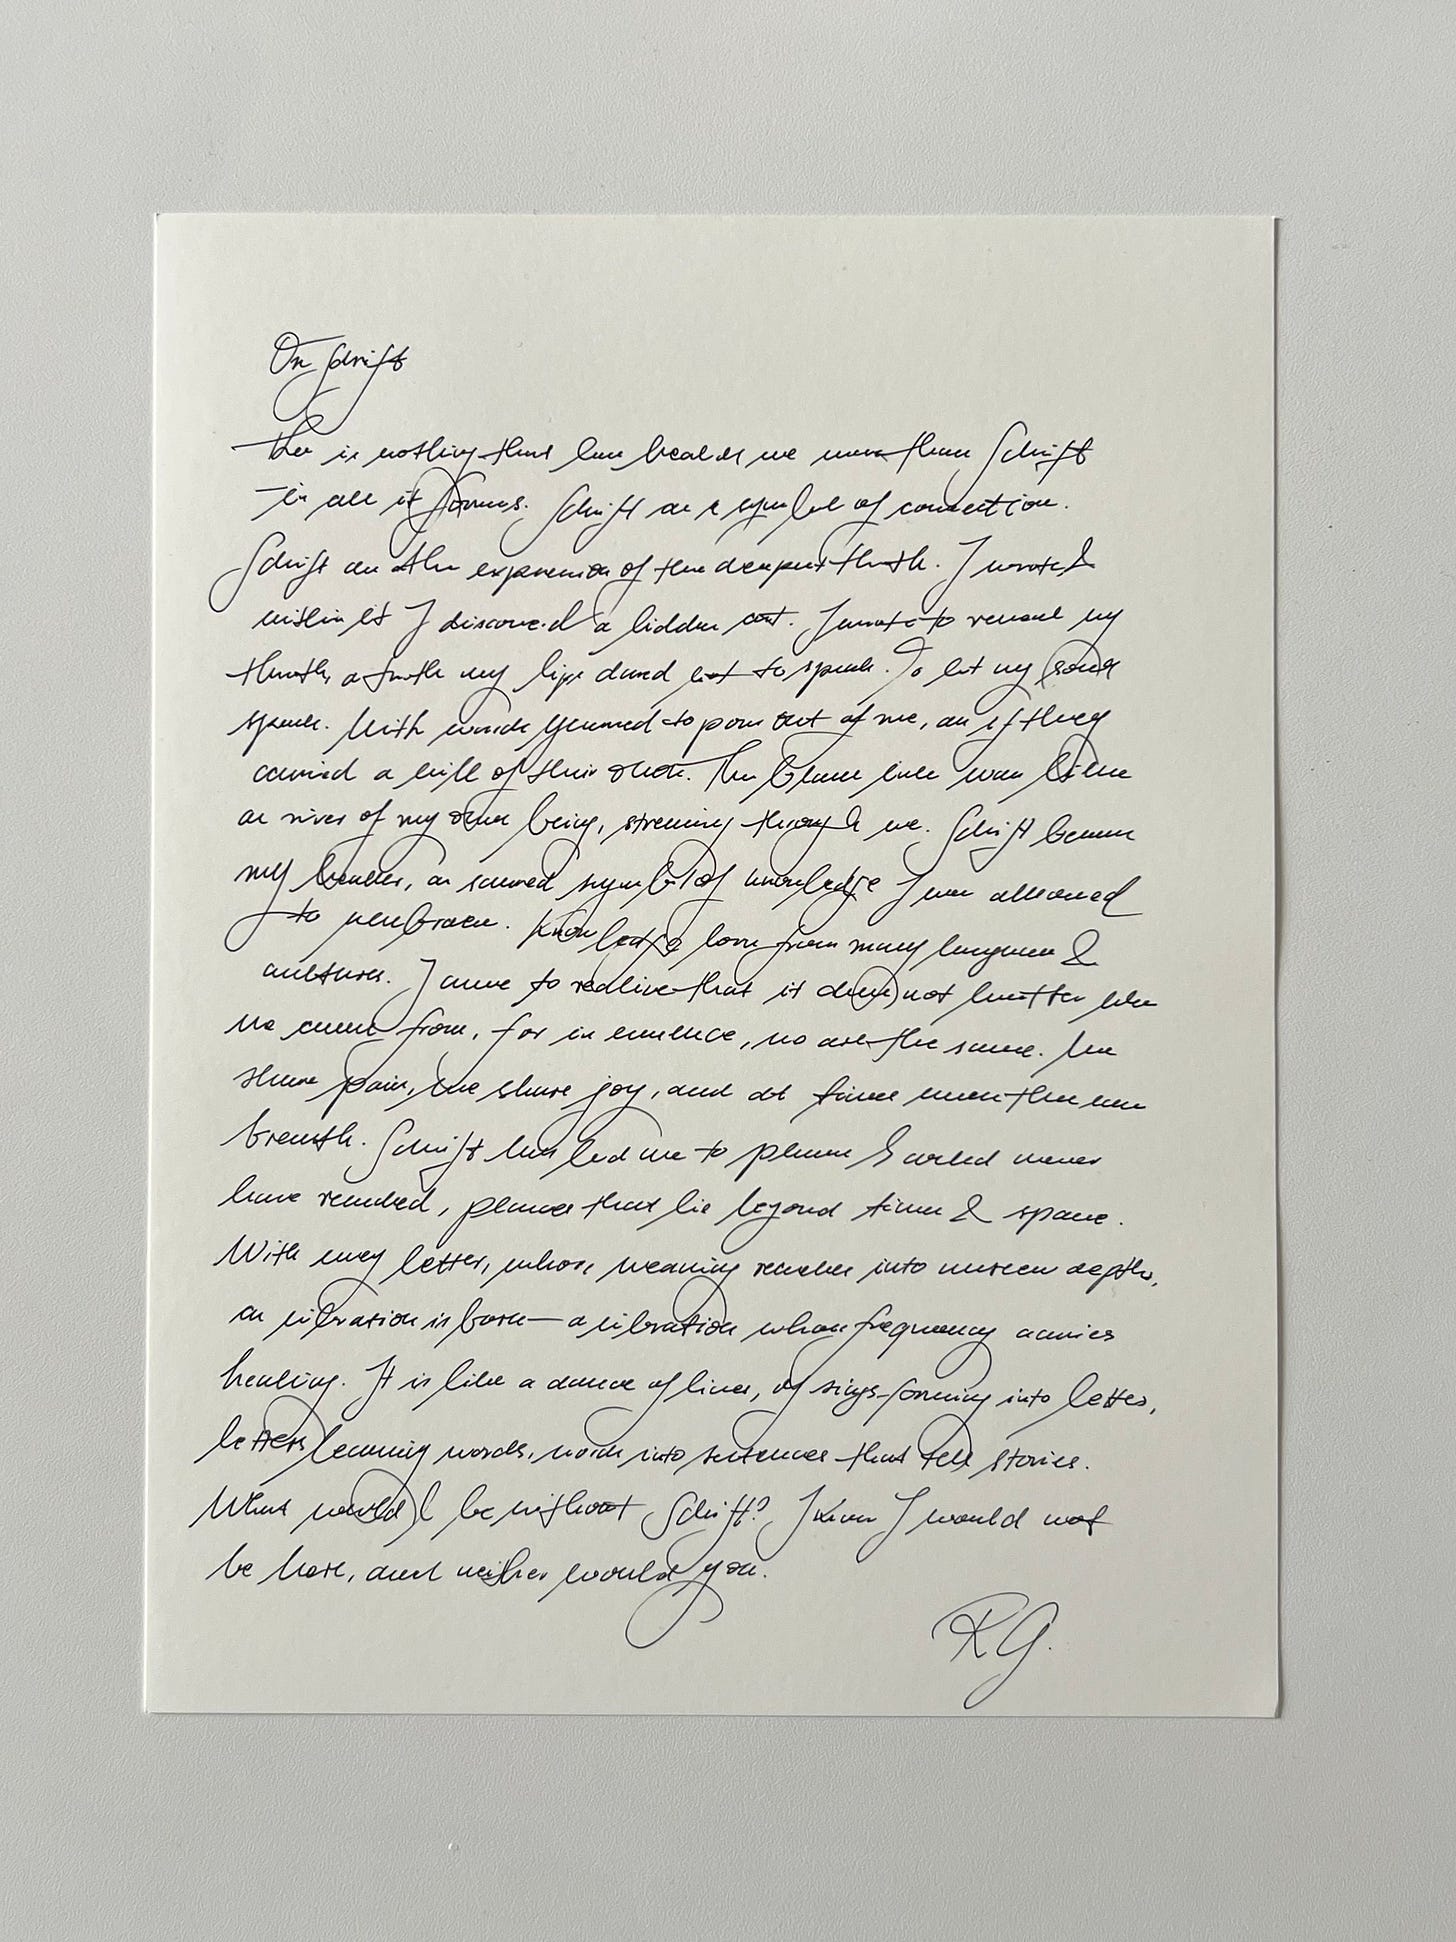 On Schrift
There is nothing that has healed me more than Schrift
in all its forms. Schrift as a symbol of connection.
Schrift as the expression of the deepest truth. I wrote &
within it I discovered a hidden art. I wrote to reveal my
truth, a truth my lips dared not to speak. To let my soul
speak. With words yearned to pour out of me, as if they
carried a will of their own. The blue ink was like
a river of my own being, streaming through me. Schrift became
my healer, a sacred symbol of knowledge I was allowed
to embrace. Knowledge born from many languages &
cultures. I came to realize that it does not matter where
we come from, for in essence, we are the same. We
share pain, we share joy, and at times even the same
breath. Schrift has led me to places I could never
have reached, places that lie beyond time & space.
With every letter, whose meaning reaches into unseen depths,
a vibration is born — a vibration whose frequency carries
healing. It is like a dance of lines, of signs forming into letters,
letters becoming words, words into sentences that tell stories.
What would I be without Schrift? I know I would not
be here, and neither would you.
RG.